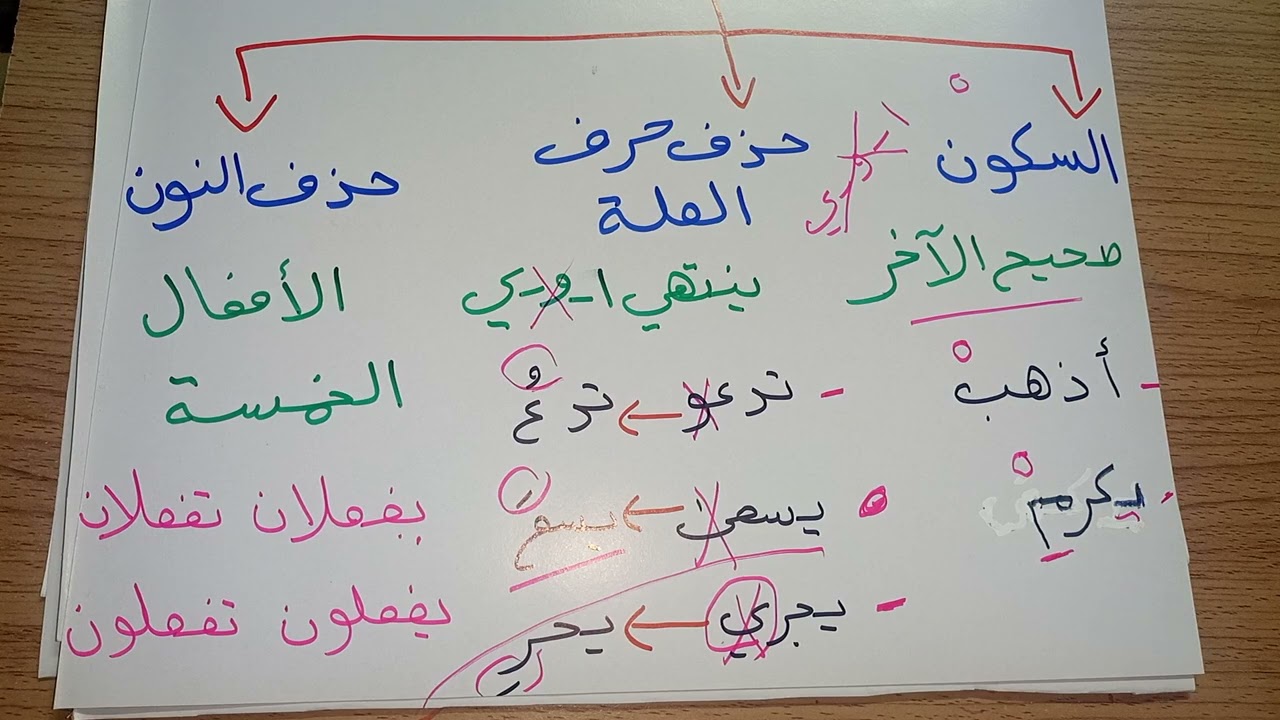 السكون
صحيح الآخر
- أذهبْ
- يكرمْ
حزف حرف
العلة
ينتهي ا - و - ي
- تدعو ← تدعُ
يسعى ← يسعَ
- يجري ← يجرِ
حزف النون
الأفعال
الخمسة
يفعلان تفعلان
يفعلون تفعلون